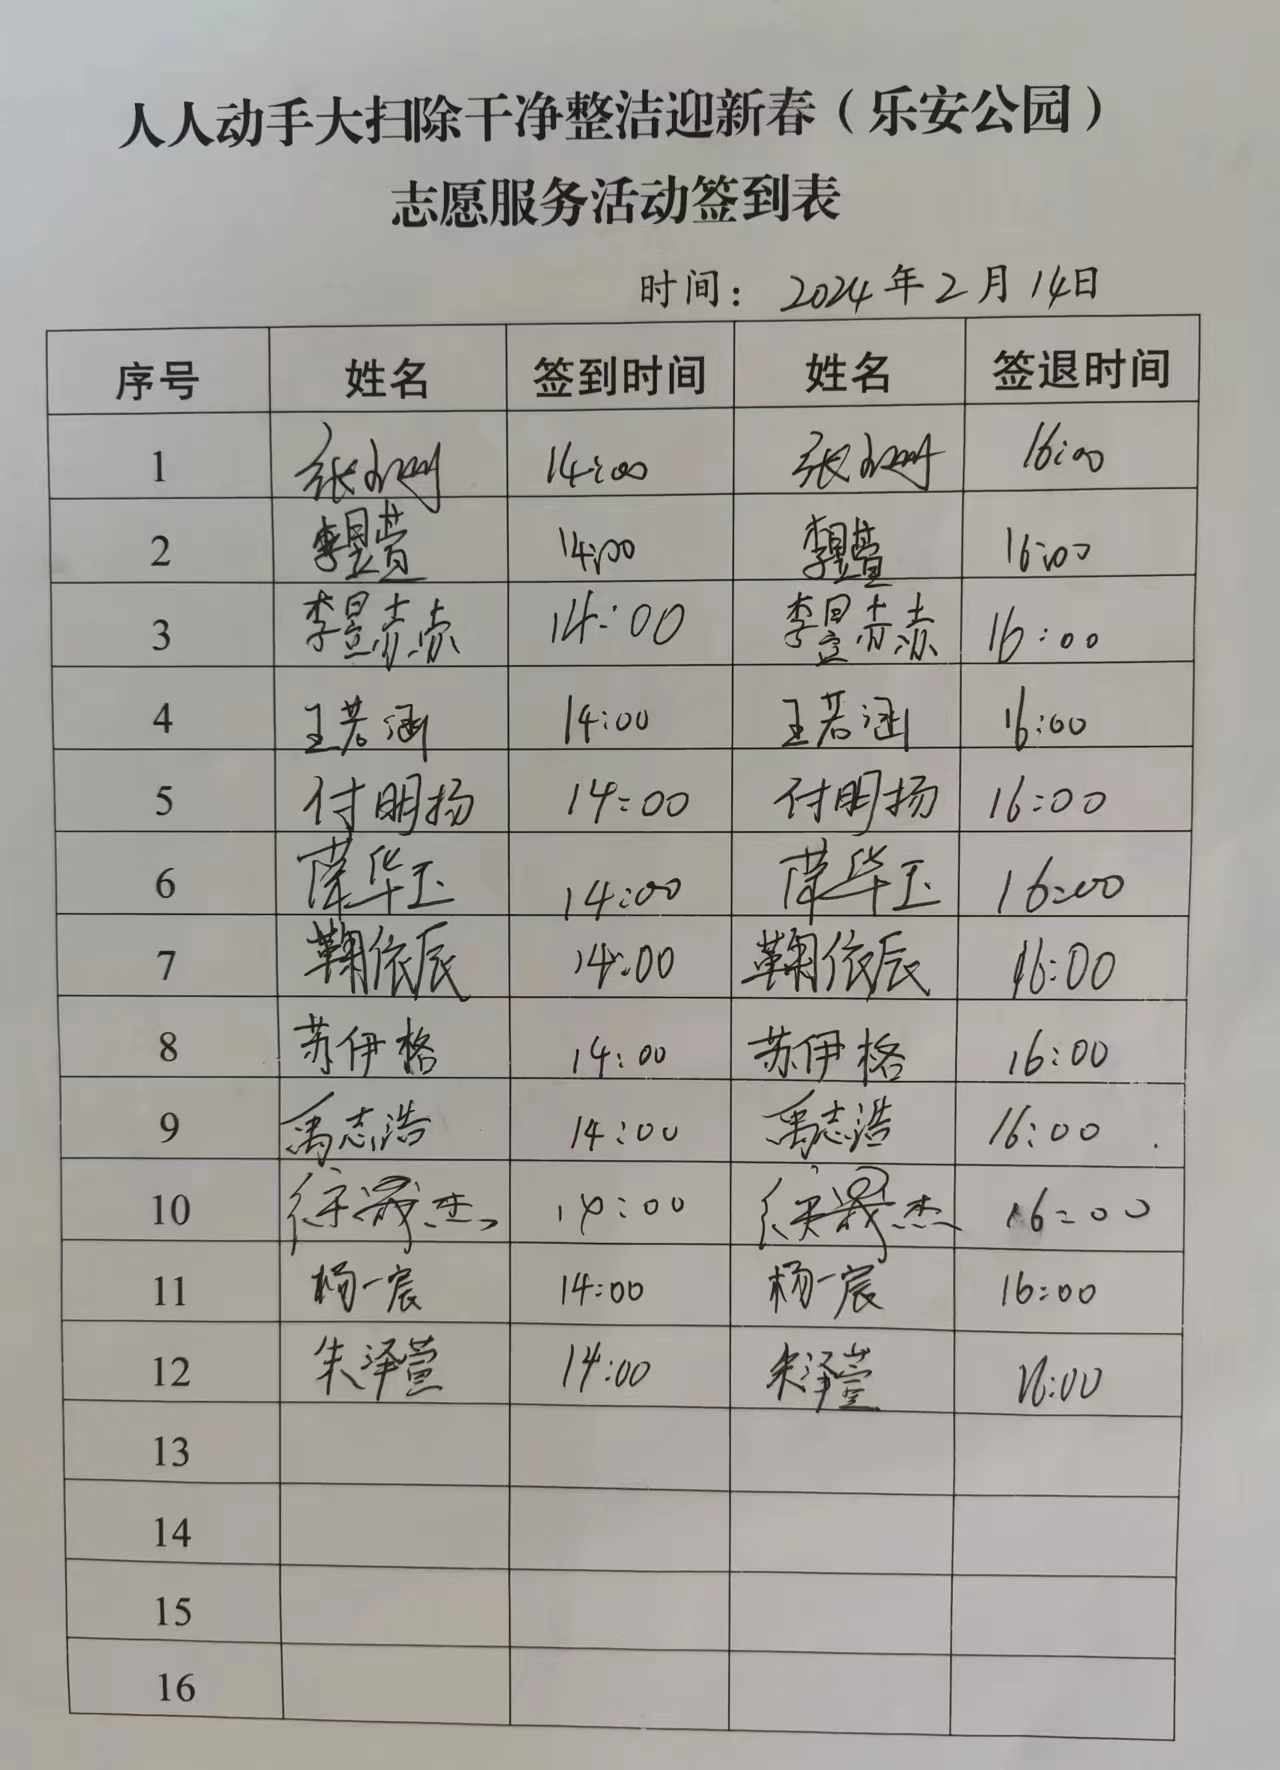 人人动手大扫除干净整洁迎新春（乐安公园）
志愿服务活动签到表
时间：2024年2月14日
序号 姓名 签到时间 姓名 签退时间
1 张 14:00 张 16:00
2 李昱萱 14:00 李昱萱 16:00
3 李昱赤赤 14:00 李昱赤赤 16:00
4 王若涵 14:00 王若涵 16:00
5 付明扬 14:00 付明扬 16:00
6 华玉 14:00 华玉 16:00
7 鞠依辰 14:00 鞠依辰 16:00
8 苏伊格 14:00 苏伊格 16:00
9 禹志浩 14:00 禹志浩 16:00
10 徐 杰 14:00 徐 杰 16:00
11 杨一宸 14:00 杨一宸 16:00
12 朱泽萱 14:00 朱泽萱 16:00
13
14
15
16